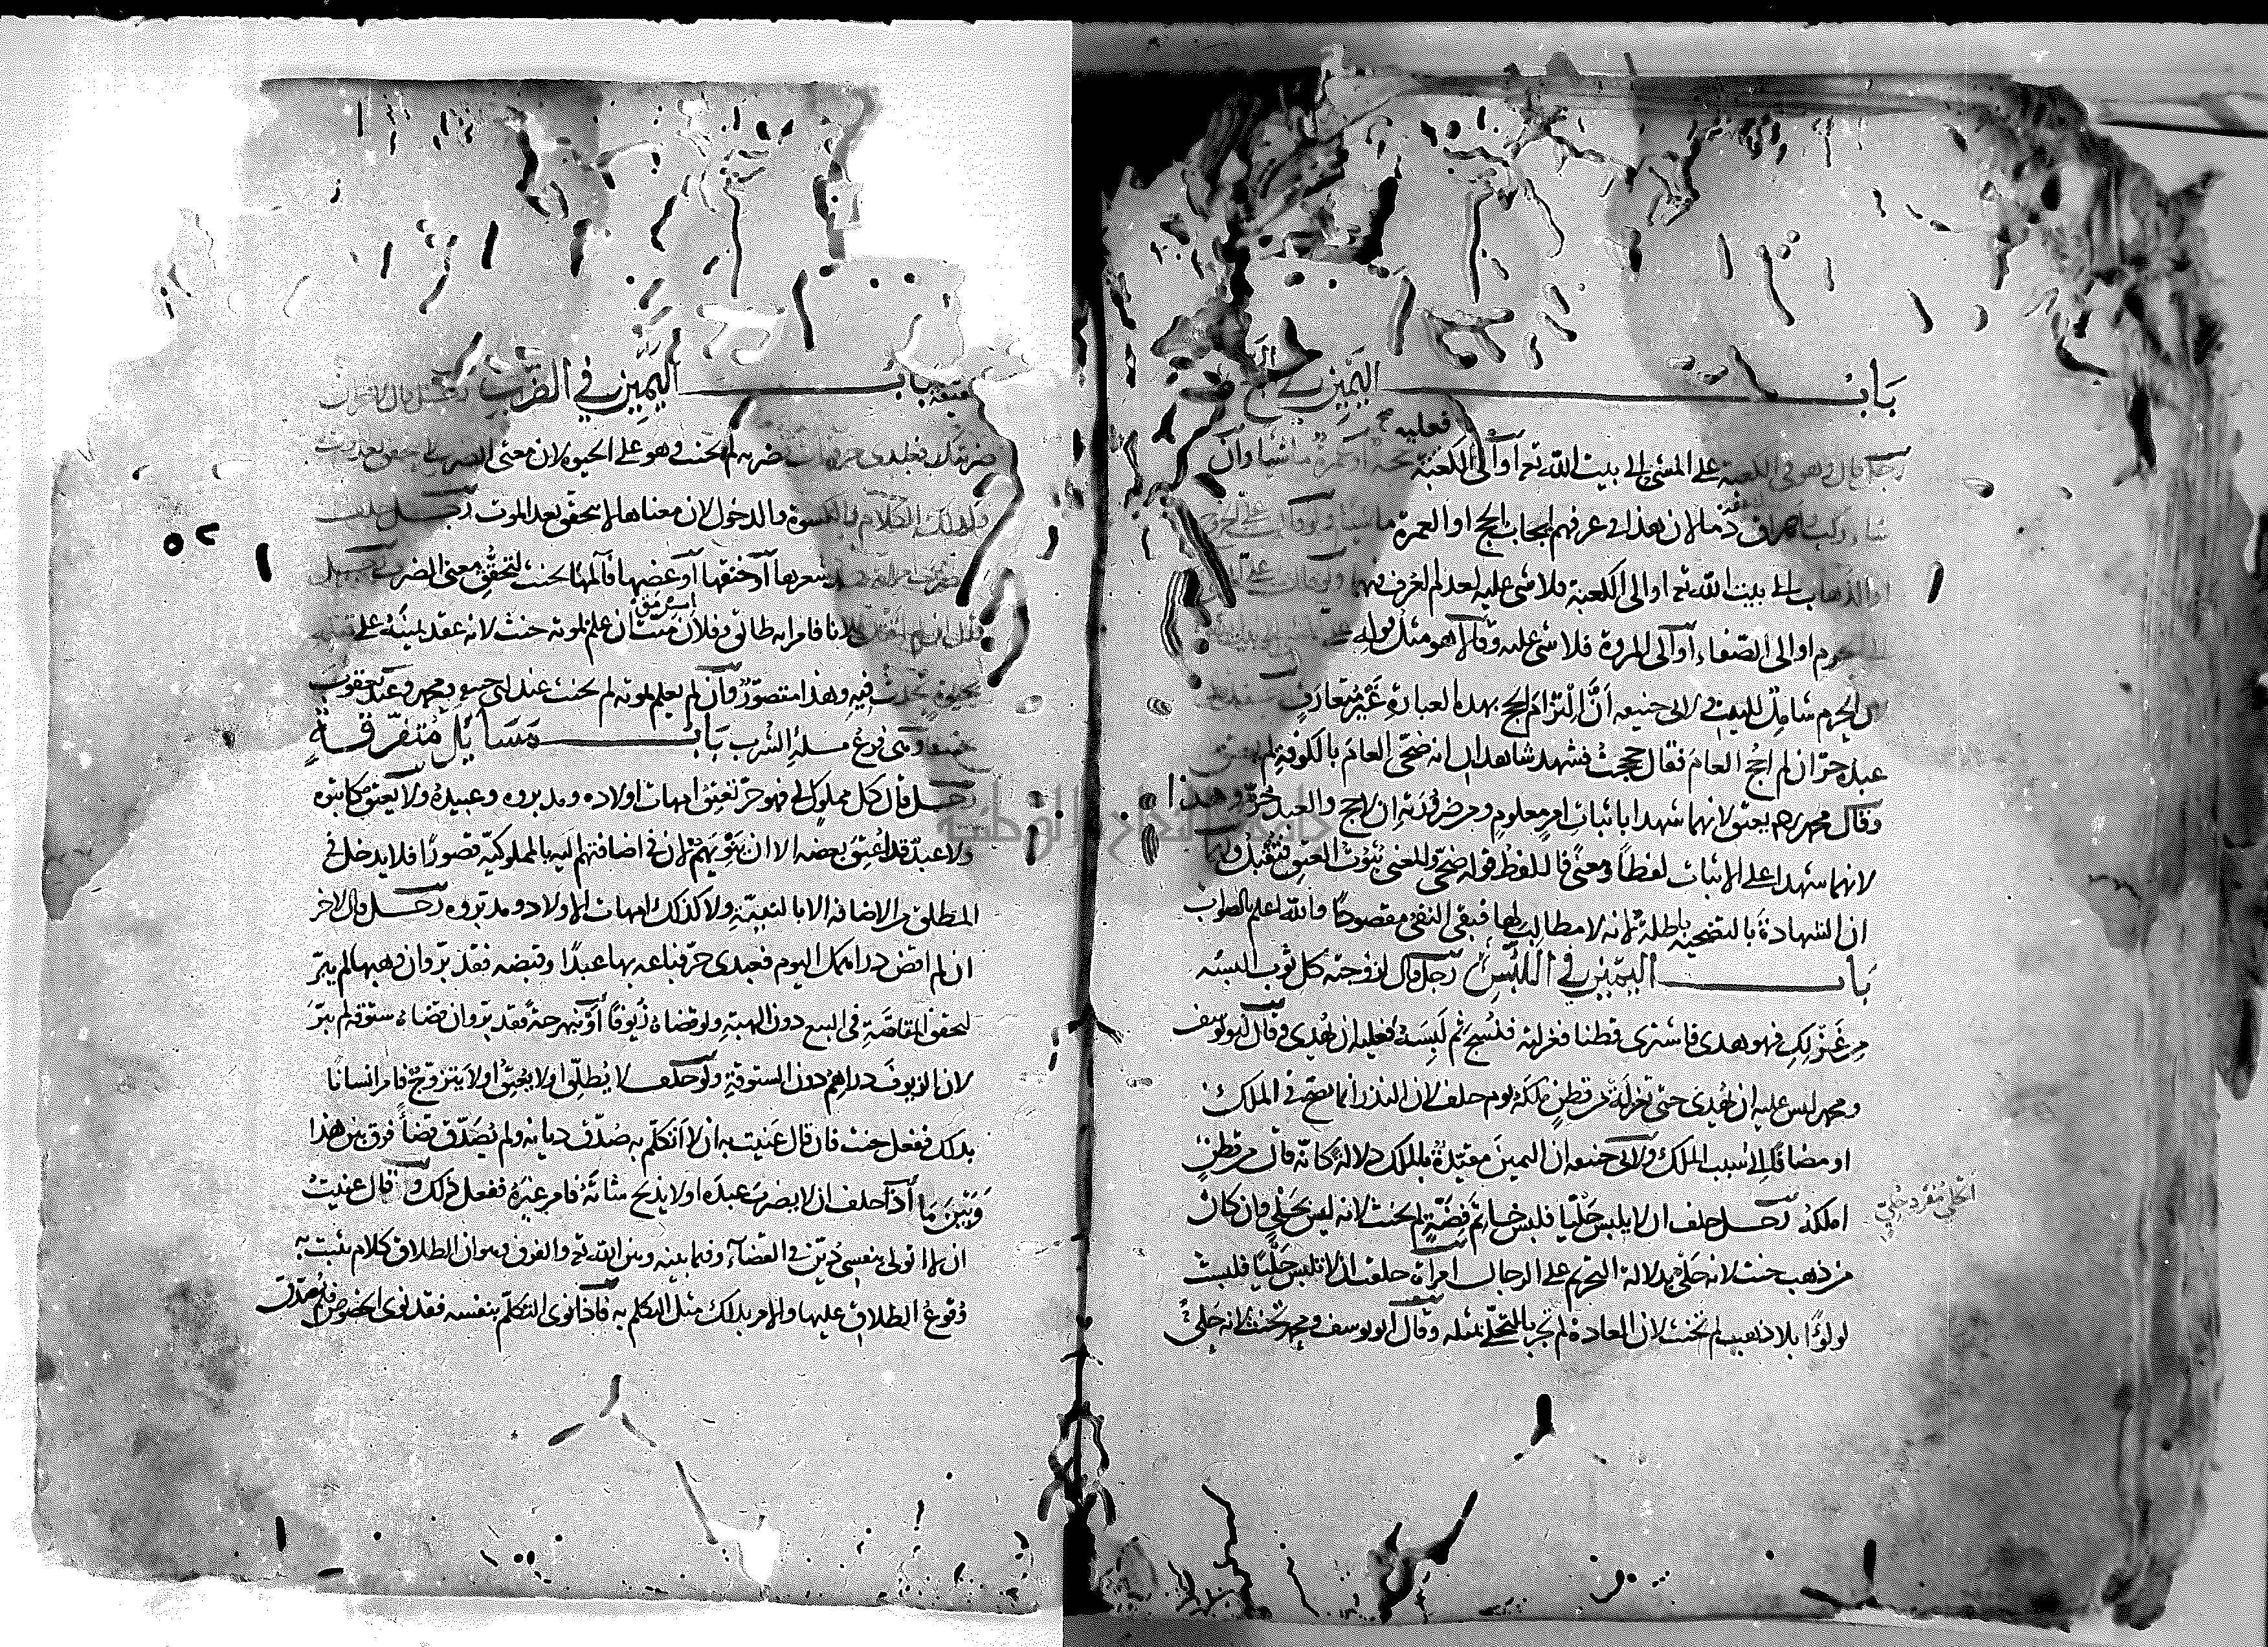 بَابُ اليَمِينِ في الحج
رجل قال وهو في الكعبة علي المشي الي بيت الله تع أو الى الكعبة فعليه حجة أو عمرة ماشيا وان
شاء ركب واهراق دما لان هذا في عرفهم ايجاب الحج او العمرة ماشيا ولو قال علي الخروج
او الذهاب الي بيت الله تع او الى الكعبة فلا شئ عليه لعدم العرف فيهما ولو قال علي المشي
الحرم او الى الصفاء أو الى المروة فلا شئ عليه وقالا هو مثل قوله علي
لان الحرم شامل للبيت ولابي حنيفه أنَّ التزام الحج بهذه العبارة غير متعارف
عبده حرّ ان لم احج العام فقال حججت فشهد شاهدان انه ضحّى العام بالكوفة لم يعتق
وقال محمد رحمه يعتق لانهما شهدا باثبات امر معلوم ومن ضرورته ان لا حج والعبد حرّ وهذا
لانهما شهدا على الاثبات لفظاً ومعنىً فاللفظ قوله ضحّى والمعنى ثبوت العتق فتقبل ولهما
ان الشهادة بالتضحية باطلة لانه لا مطالب لها فبقي النفي مقصوداً والله اعلم بالصواب
بَابُ اليَمِينِ في اللُبْسِ رجل قال لزوجته كل ثوب البسه
من غزلكِ فهو هدي فاشترى قطنا فغزلته فنُسِجَ ثم لَبِسَهُ فعليه ان يُهدي وقال ابو يوسف
ومحمد ليس عليه ان يُهدي حتى تغزله من قطنٍ ملكه يوم حلف لان النذر انما يصح في الملك
او مضافا الى سبب الملك ولابي حنيفه ان اليمين مقيّدة بالملك دلالةً كانّه قال من قطنٍ
املكه رجل حلف ان لا يلبس حَلْيًا فلبس خاتم فضّةٍ لم يحنث لانه ليس بحَلْي وان كان
من ذهب حنث لانه حَلْي بدلالة التحريم على الرجال امراة حلفت ان لا تلبس حَلْيًا فلبست
لولؤًا بلا ذهب لم تحنث لان العادة لم تجر بالتحلّي بمثله وقال ابو يوسف ومحمد تحنث لانه حَلْي
الحلي مفرد حُلِيّ
بابُ اليَمِينِ في الضَربِ رجل قال لاخر ان
ضربتك فعبدي حر فمات فضربه لم يحنث وهو على الحيوة لان معنى الضرب لا يتحقق بعد الموت
وكذلك الكلام والكسوة والدخول لان معناها لا يتحقق بعد الموت رجل حلف
لا يضرب امراته فمد شعرها أو خنقها أو عضها فآلمها يحنث لتحقّق معنى الضرب رجل
قال ان لم اقتل فلانا فامراته طالق وفلان ميّت ان علم بموته حنث لانه عقد يمينَهُ على
بحيوةٍ تحدث فيهِ وهذا متصوّر وان لم يعلم بموته لم يحنث عند ابي حنيفه ومحمد وعند يعقوب
يحنث وهى فرع مسلة الشرب بَابُ مَسَايل مُتفرّقةٍ
رجل قال كل مملوك لي فهو حرّ تعتق امهات اولاده ومدبروه وعبيده ولا يعتق مكاتبوه
ولا عبدٌ قد اُعتِقَ بعضه الا ان ينويهم لان في اضافتهم اليه بالمملوكيّة قصورًا فلا يدخل في
المطلق من الاضافة الا بالنيّةِ ولا كذلك امهات الاولاد ومدبّروه رجل قال لاخر
ان لم اقض دراهمك اليوم فعبدي حرّ فباعه بها عبدًا وقبضه فقد برّ وان وهبها لم يبرّ
لتحقق المقاصّةِ في البيع دون الهبة ولو قضاه زُيوفاً أو نبهرجةً فقد برّ وان قضاه ستوقة لم يبرّ
لان الزيوفَ دراهم دون الستوقةِ ولو حلف لا يُطلّق او لا يُعتِق او لا يتزوّج فامر انسانا
بذلك ففعل حنث فان قال عنيت به ان لا اتكلّم به صُدّق ديانة ولم يُصَدّق قضاءً فرق بين هذا
وَبَيْنَ مَا اذا حلف ان لا يضرب عبدَه او لا يذبح شاتَهُ فامر غيرَهُ ففعل ذلك وقال عنيت
ان لا اتولى بنفسي دُيّن في القضاء وفيما بينه وبين الله تع والفرق هو ان الطلاق كلام يثبت به
وُقوعُ الطلاق عليها والامر بذلك مثل التكلم به فاذا نوى التكلّم بنفسه فقد نوى الخصوص فلم يُصَدّق